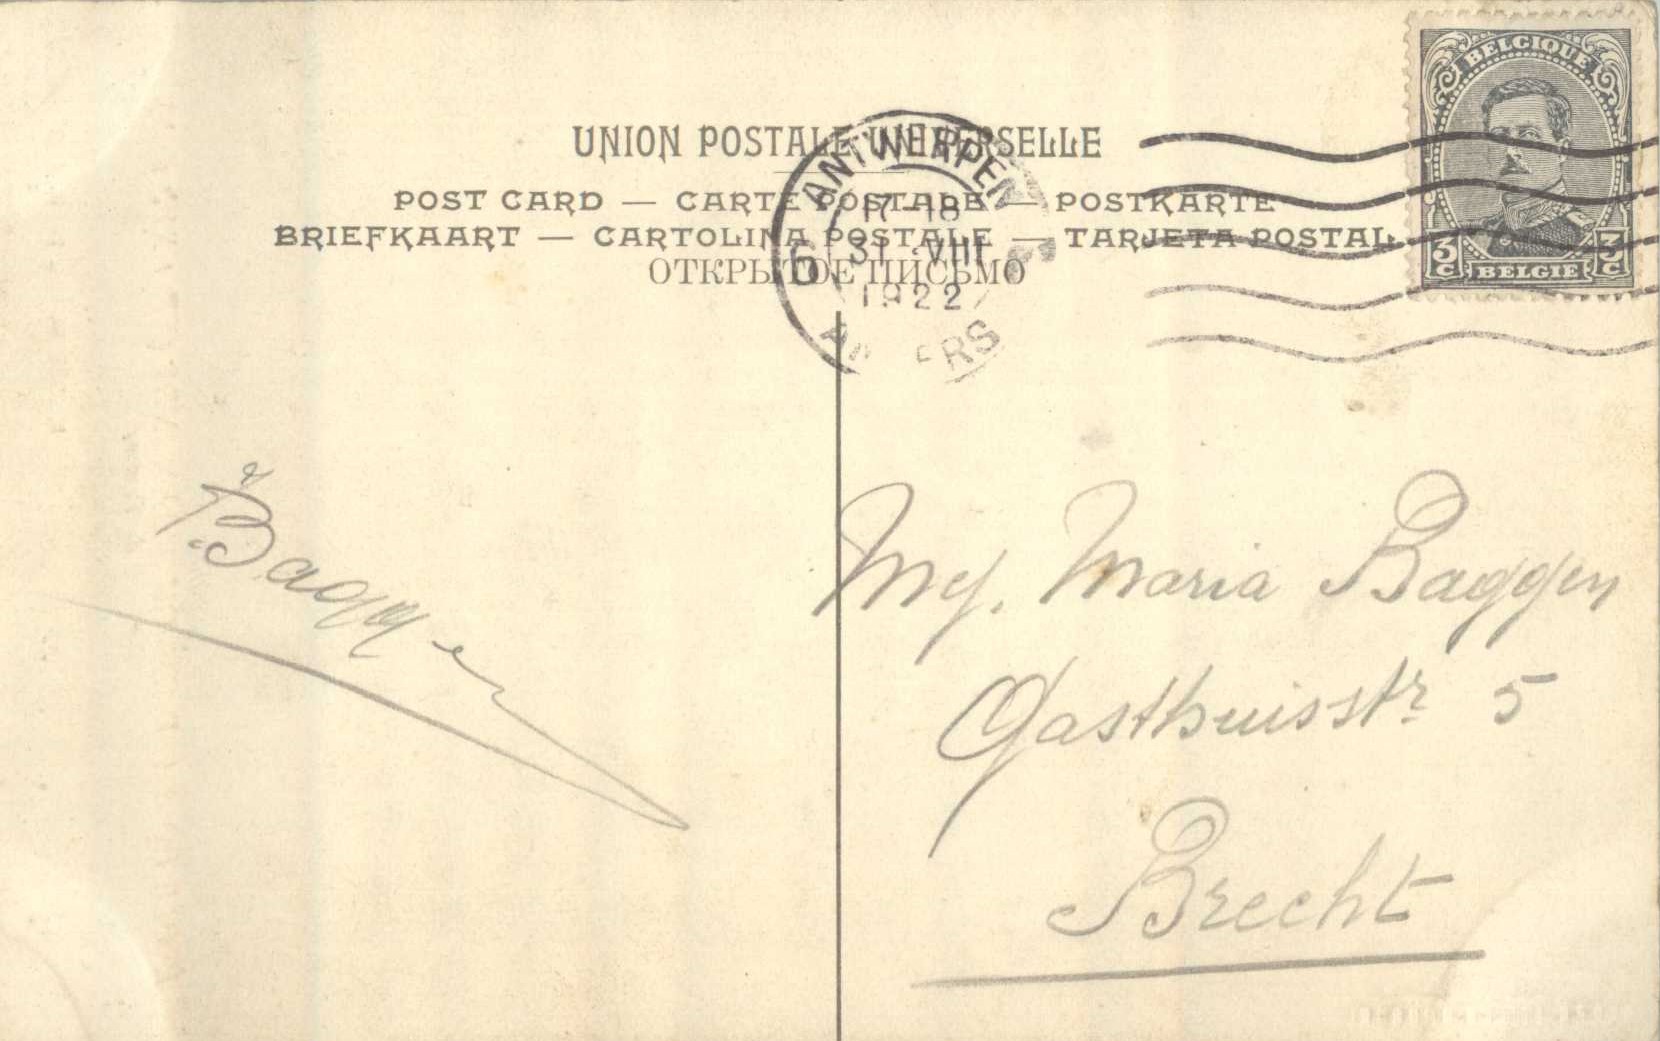 UNION POSTALE UNIVERSELLE
POST CARD — CARTE POSTALE — POSTKARTE
BRIEFKAART — CARTOLINA POSTALE — TARJETA POSTAL
ОТКРЫТОЕ ПИСЬМО
ANTWERPEN
17-18
6 31 VIII
1922
ANVERS
BELGIQUE
3 C BELGIE 3 C
Baggen
Mej. Maria Baggen
Gasthuisstr 5
Brecht